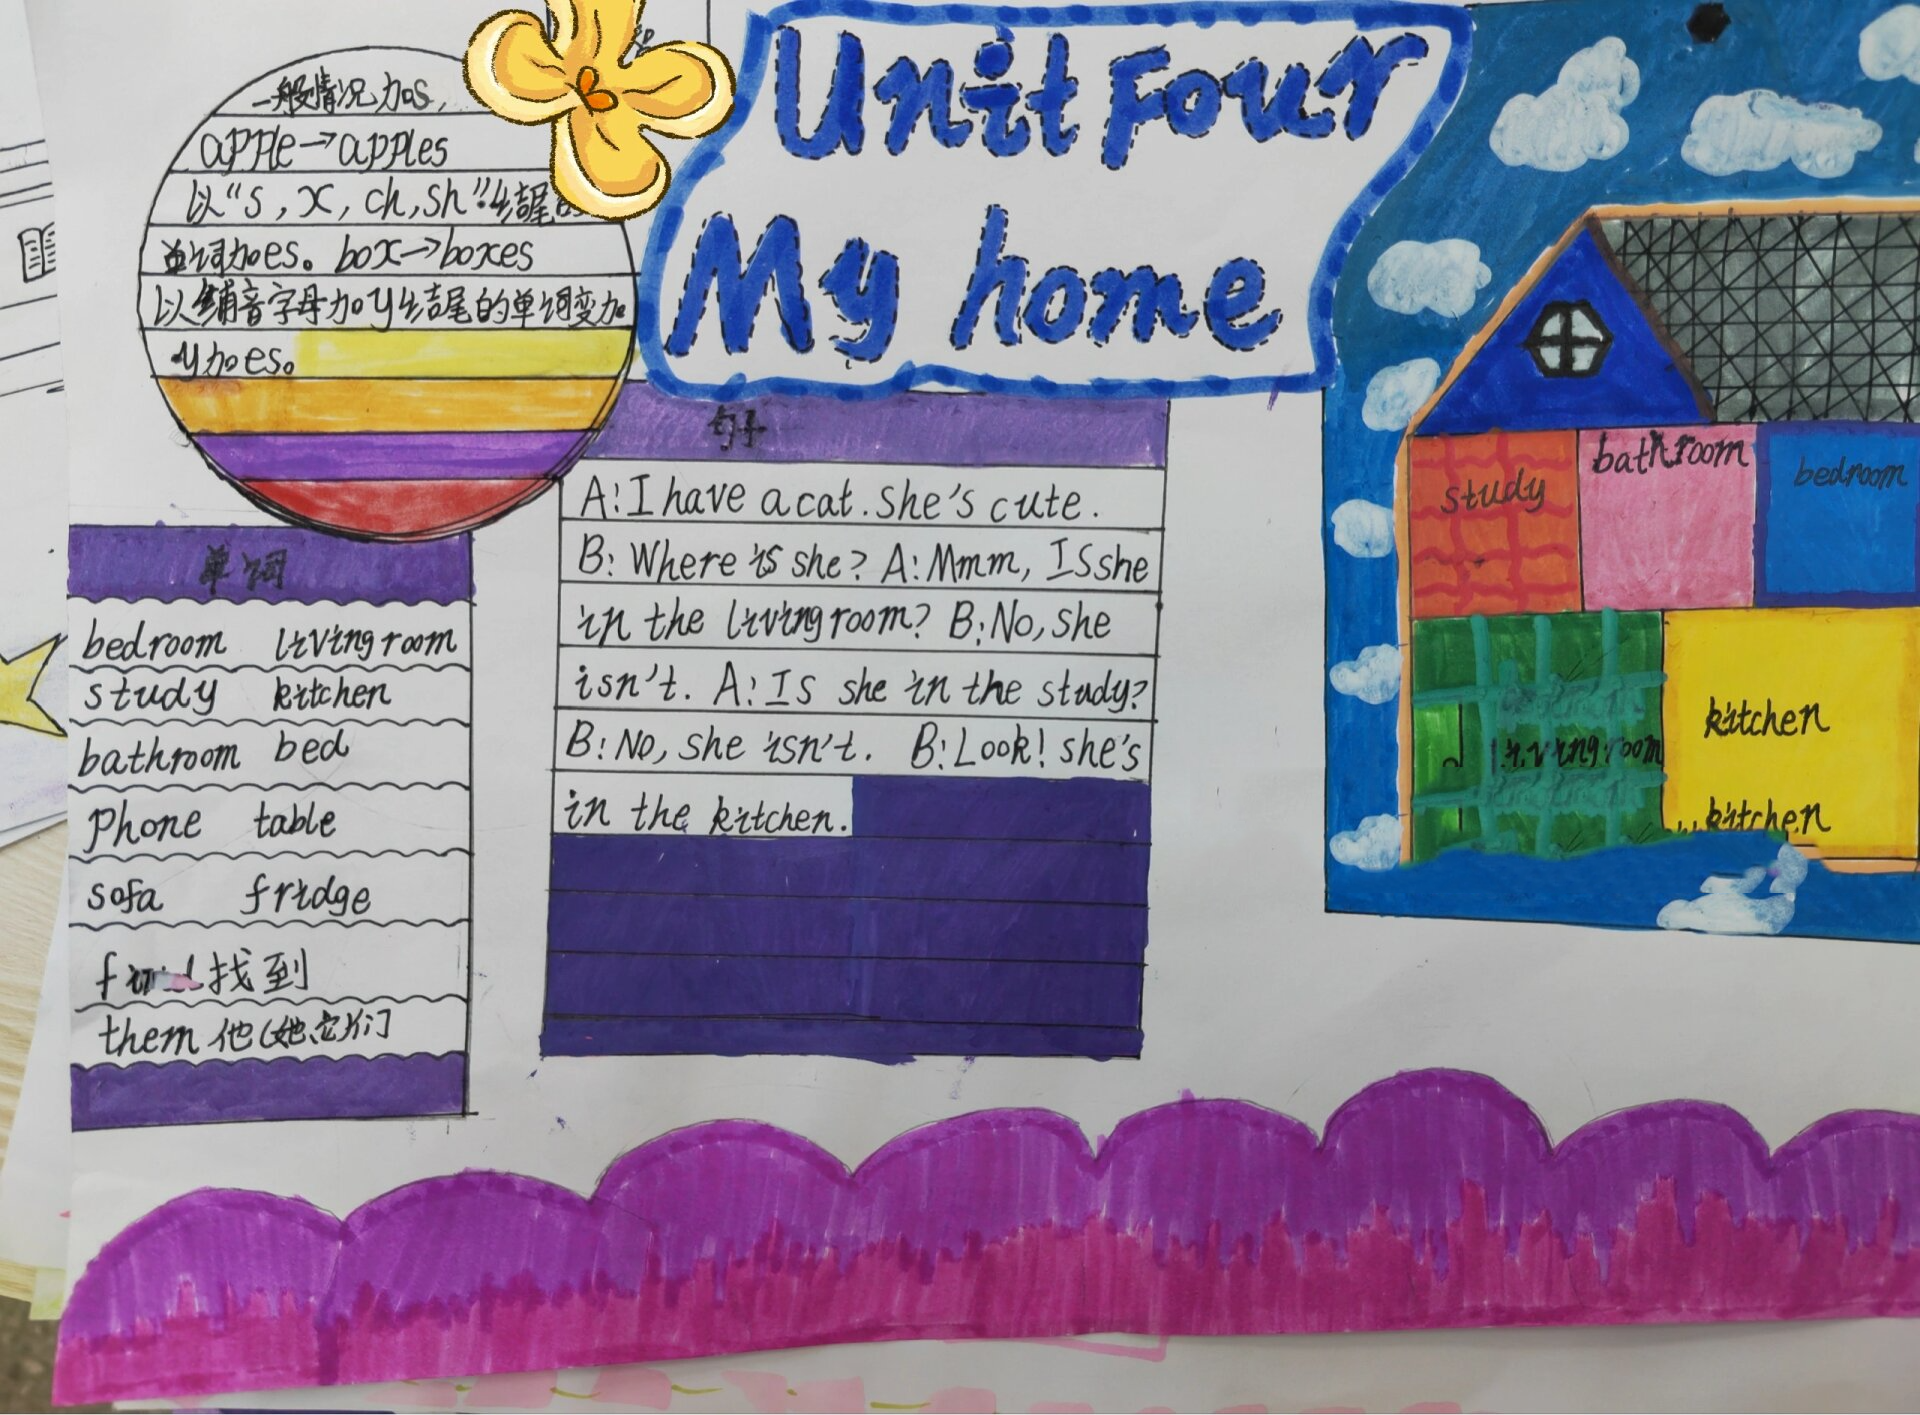 Unit Four
My home
一般情况加s,
apple→apples
以“s, x, ch, sh”结尾的
单词加es。box→boxes
以辅音字母加y结尾的单词变加
y加es。
句子
A: I have a cat. She's cute.
B: Where is she? A: Mmm, Is she
in the living room? B: No, she
isn't. A: Is she in the study?
B: No, she isn't. B: Look! she's
in the kitchen.
单词
bedroom living room
study kitchen
bathroom bed
phone table
sofa fridge
找到
them 他(她、它)们
study
bathroom
bedroom
living room
kitchen
kitchen